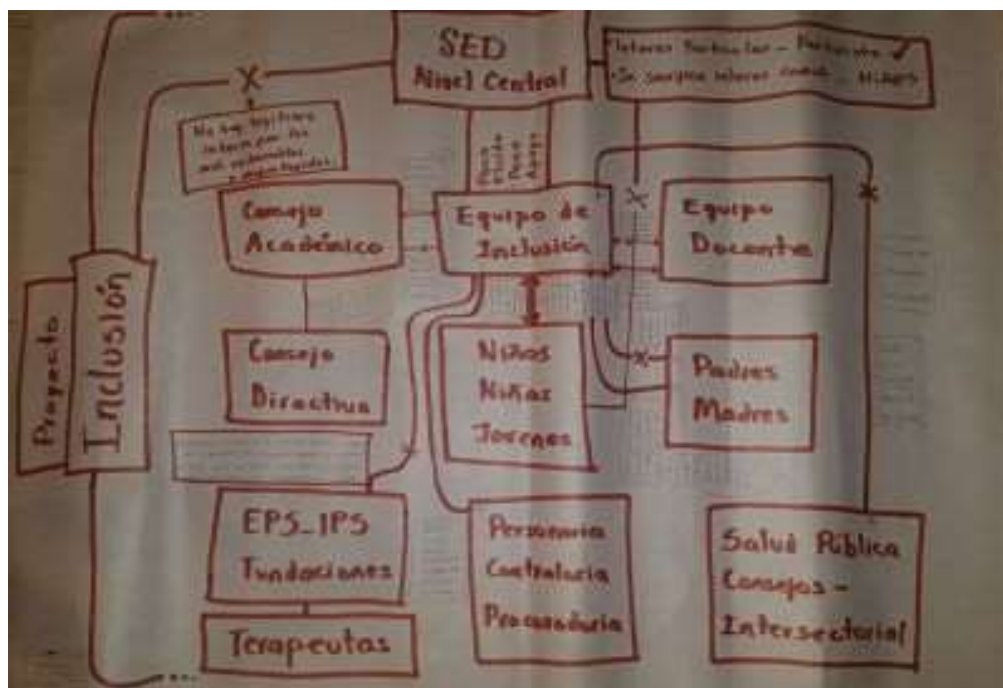 SED
Nivel Central
Interes Particular -
- Niños
No hay
Poco
Fluido
Poco
Apoyo
Consejo
Académico
Equipo de
Inclusión
Equipo
Docente
Proyecto
Inclusión
Consejo
Directivo
Niños
Niñas
Jovenes
Padres
Madres
EPS-IPS
Fundaciones
Terapeutas
Personeria
Contraloria
Procuraduria
Salud Pública
Consejos -
Intersectorial